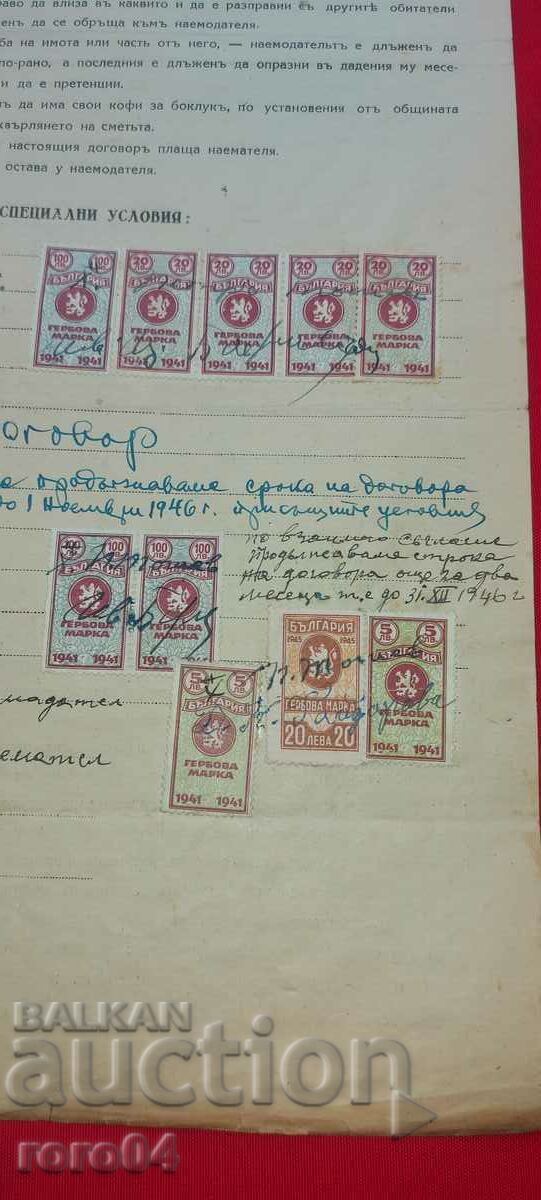 раво да ализа въ каквито и да е разправии съ другитѣ обитатели
женъ да се обръща къмъ наемодателя.
ба на имота или часть отъ него, — наемодательтъ е длъженъ да
по-рано, а последния е длъженъ да опразни въ дадения му месе-
и да е претенции.
тъ да има свои кофи за боклукъ, по установения отъ общината
хвърлянето на сметьта.
настоящия договоръ плаща наемателя.
остава у наемодателя.
СПЕЦИАЛНИ УСЛОВИЯ:
100 ЛВ. 100 ЛВ. 20 ЛВ. 20 ЛВ. 20 ЛВ. 20 ЛВ. 20 ЛВ. 20 ЛВ. 20 ЛВ. 20 ЛВ.
БЪЛГАРИЯ БЪЛГАРИЯ БЪЛГАРИЯ БЪЛГАРИЯ БЪЛГАРИЯ
ГЕРБОВА МАРКА ГЕРБОВА МАРКА ГЕРБОВА МАРКА ГЕРБОВА МАРКА ГЕРБОВА МАРКА
1941 1941 1941 1941 1941 1941 1941 1941 1941 1941
оговор
а продължаваме срока на договора
до 1 Ноември 1946 г. при същите условия
по взаимно съгласие
продължаваме строка
на договора още за два
месеца т.е до 31.XII 1946 г
100 ЛВ. 100 ЛВ. 100 ЛВ. 100 ЛВ.
БЪЛГАРИЯ БЪЛГАРИЯ
ГЕРБОВА МАРКА ГЕРБОВА МАРКА
1941 1941 1941 1941
БЪЛГАРИЯ
1945 1945
ГЕРБОВА МАРКА
20 ЛЕВА 20
5 ЛВ. 5 ЛВ.
БЪЛГАРИЯ
ГЕРБОВА МАРКА
1941 1941
5 ЛВ. 5 ЛВ.
БЪЛГАРИЯ
ГЕРБОВА МАРКА
1941 1941
емател
BALKAN
auction
roro04